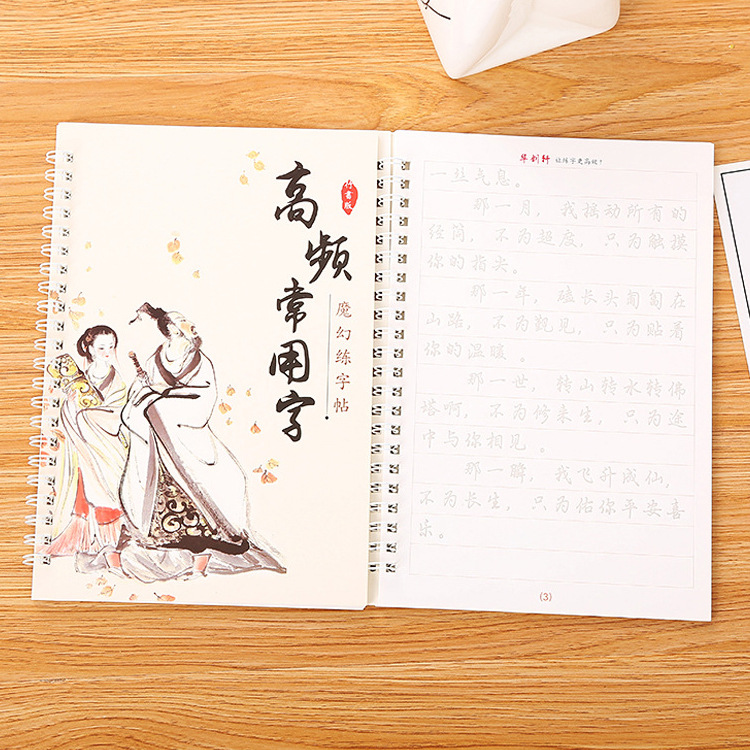 高频常用字
行书版
魔幻练字帖
华剑轩 让练字更高效!
一丝气息。
那一月，我摇动所有的
经筒，不为超度，只为触摸
你的指尖。
那一年，磕长头匍匐在
山路，不为觐见，只为贴着
你的温暖。
那一世，转山转水转佛
塔啊，不为修来生，只为途
中与你相见。
那一瞬，我飞升成仙，
不为长生，只为佑你平安喜
乐。
(3)